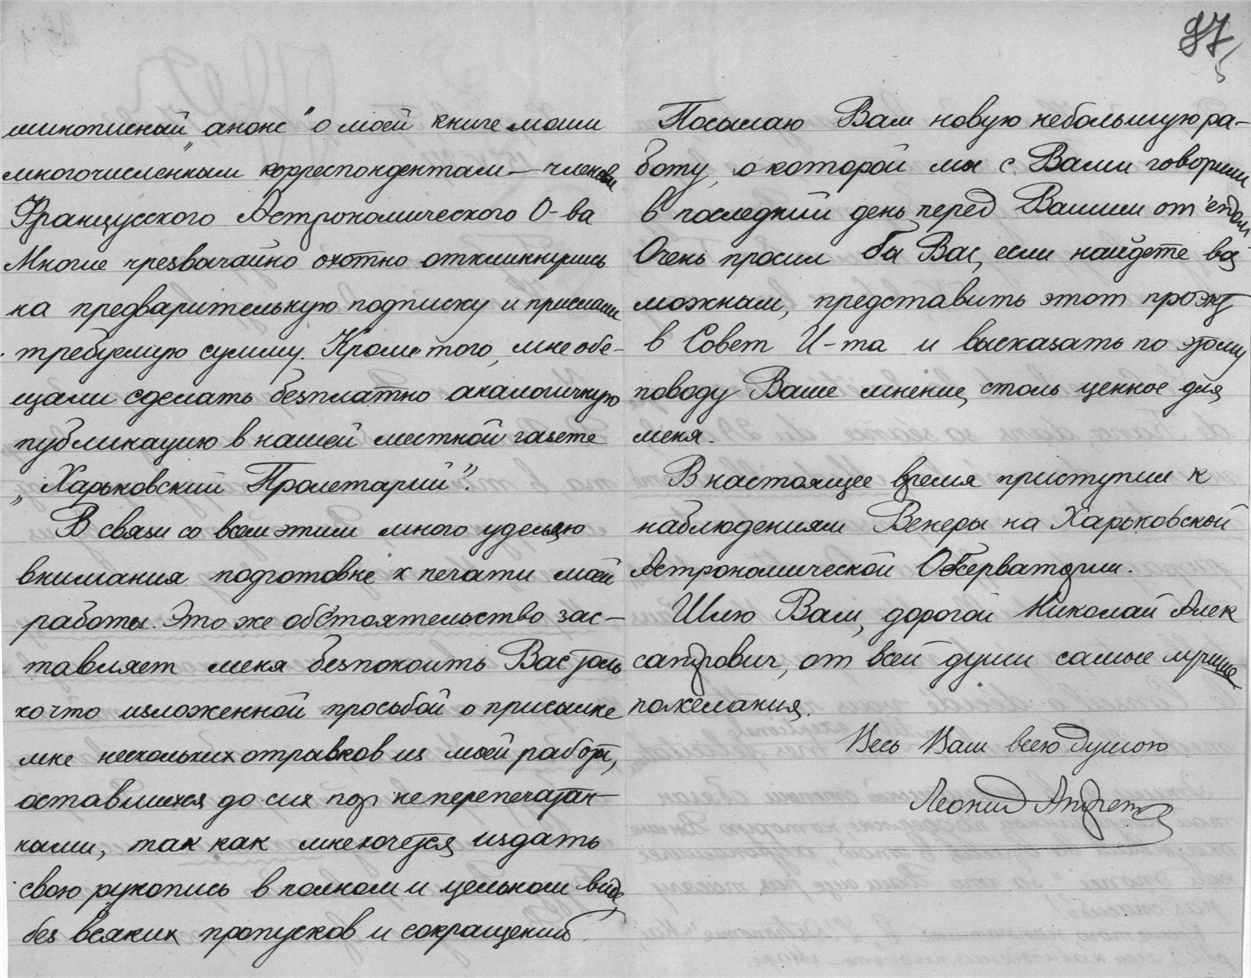 87
шинописный „анонс" о моей книге моим
многочисленным корреспондентам – членам
Французского Астрономического О-ва
Многие чрезвычайно охотно откликнулись
на предварительную подписку и прислали
требуемую сумму. Кроме того, мне обе-
щали сделать безплатно аналогичную
публикацию в нашей местной газете
„Харьковский Пролетарий".
В связи со всем этим много уделяю
внимания подготовке к печати моей
работы. Это же обстоятельство зас-
тавляет меня безпокоить Вас толь
ко что изложенной просьбой о присылке
мне нескольких отрывков из моей работы,
оставшихся до сих пор не перепечатан-
ными, так как мне хочется издать
свою рукопись в полном и цельном виде,
без всяких пропусков и сокращений.
Посылаю Вам новую небольшую ра-
боту, о которой мы с Вами говорили
в последний день перед Вашим от'ездом
Очень просил бы Вас, если найдете воз
можным, представить этот проэкт
в Совет И-та и высказать по этому
поводу Ваше мнение, столь ценное для
меня.
В настоящее время приступил к
наблюдениям Венеры на Харьковской
Астрономической Обсерватории.
Шлю Вам, дорогой Николай Алек
сандрович, от всей души самые лучшие
пожелания.
Весь Ваш всею душою
Леонид Андренко